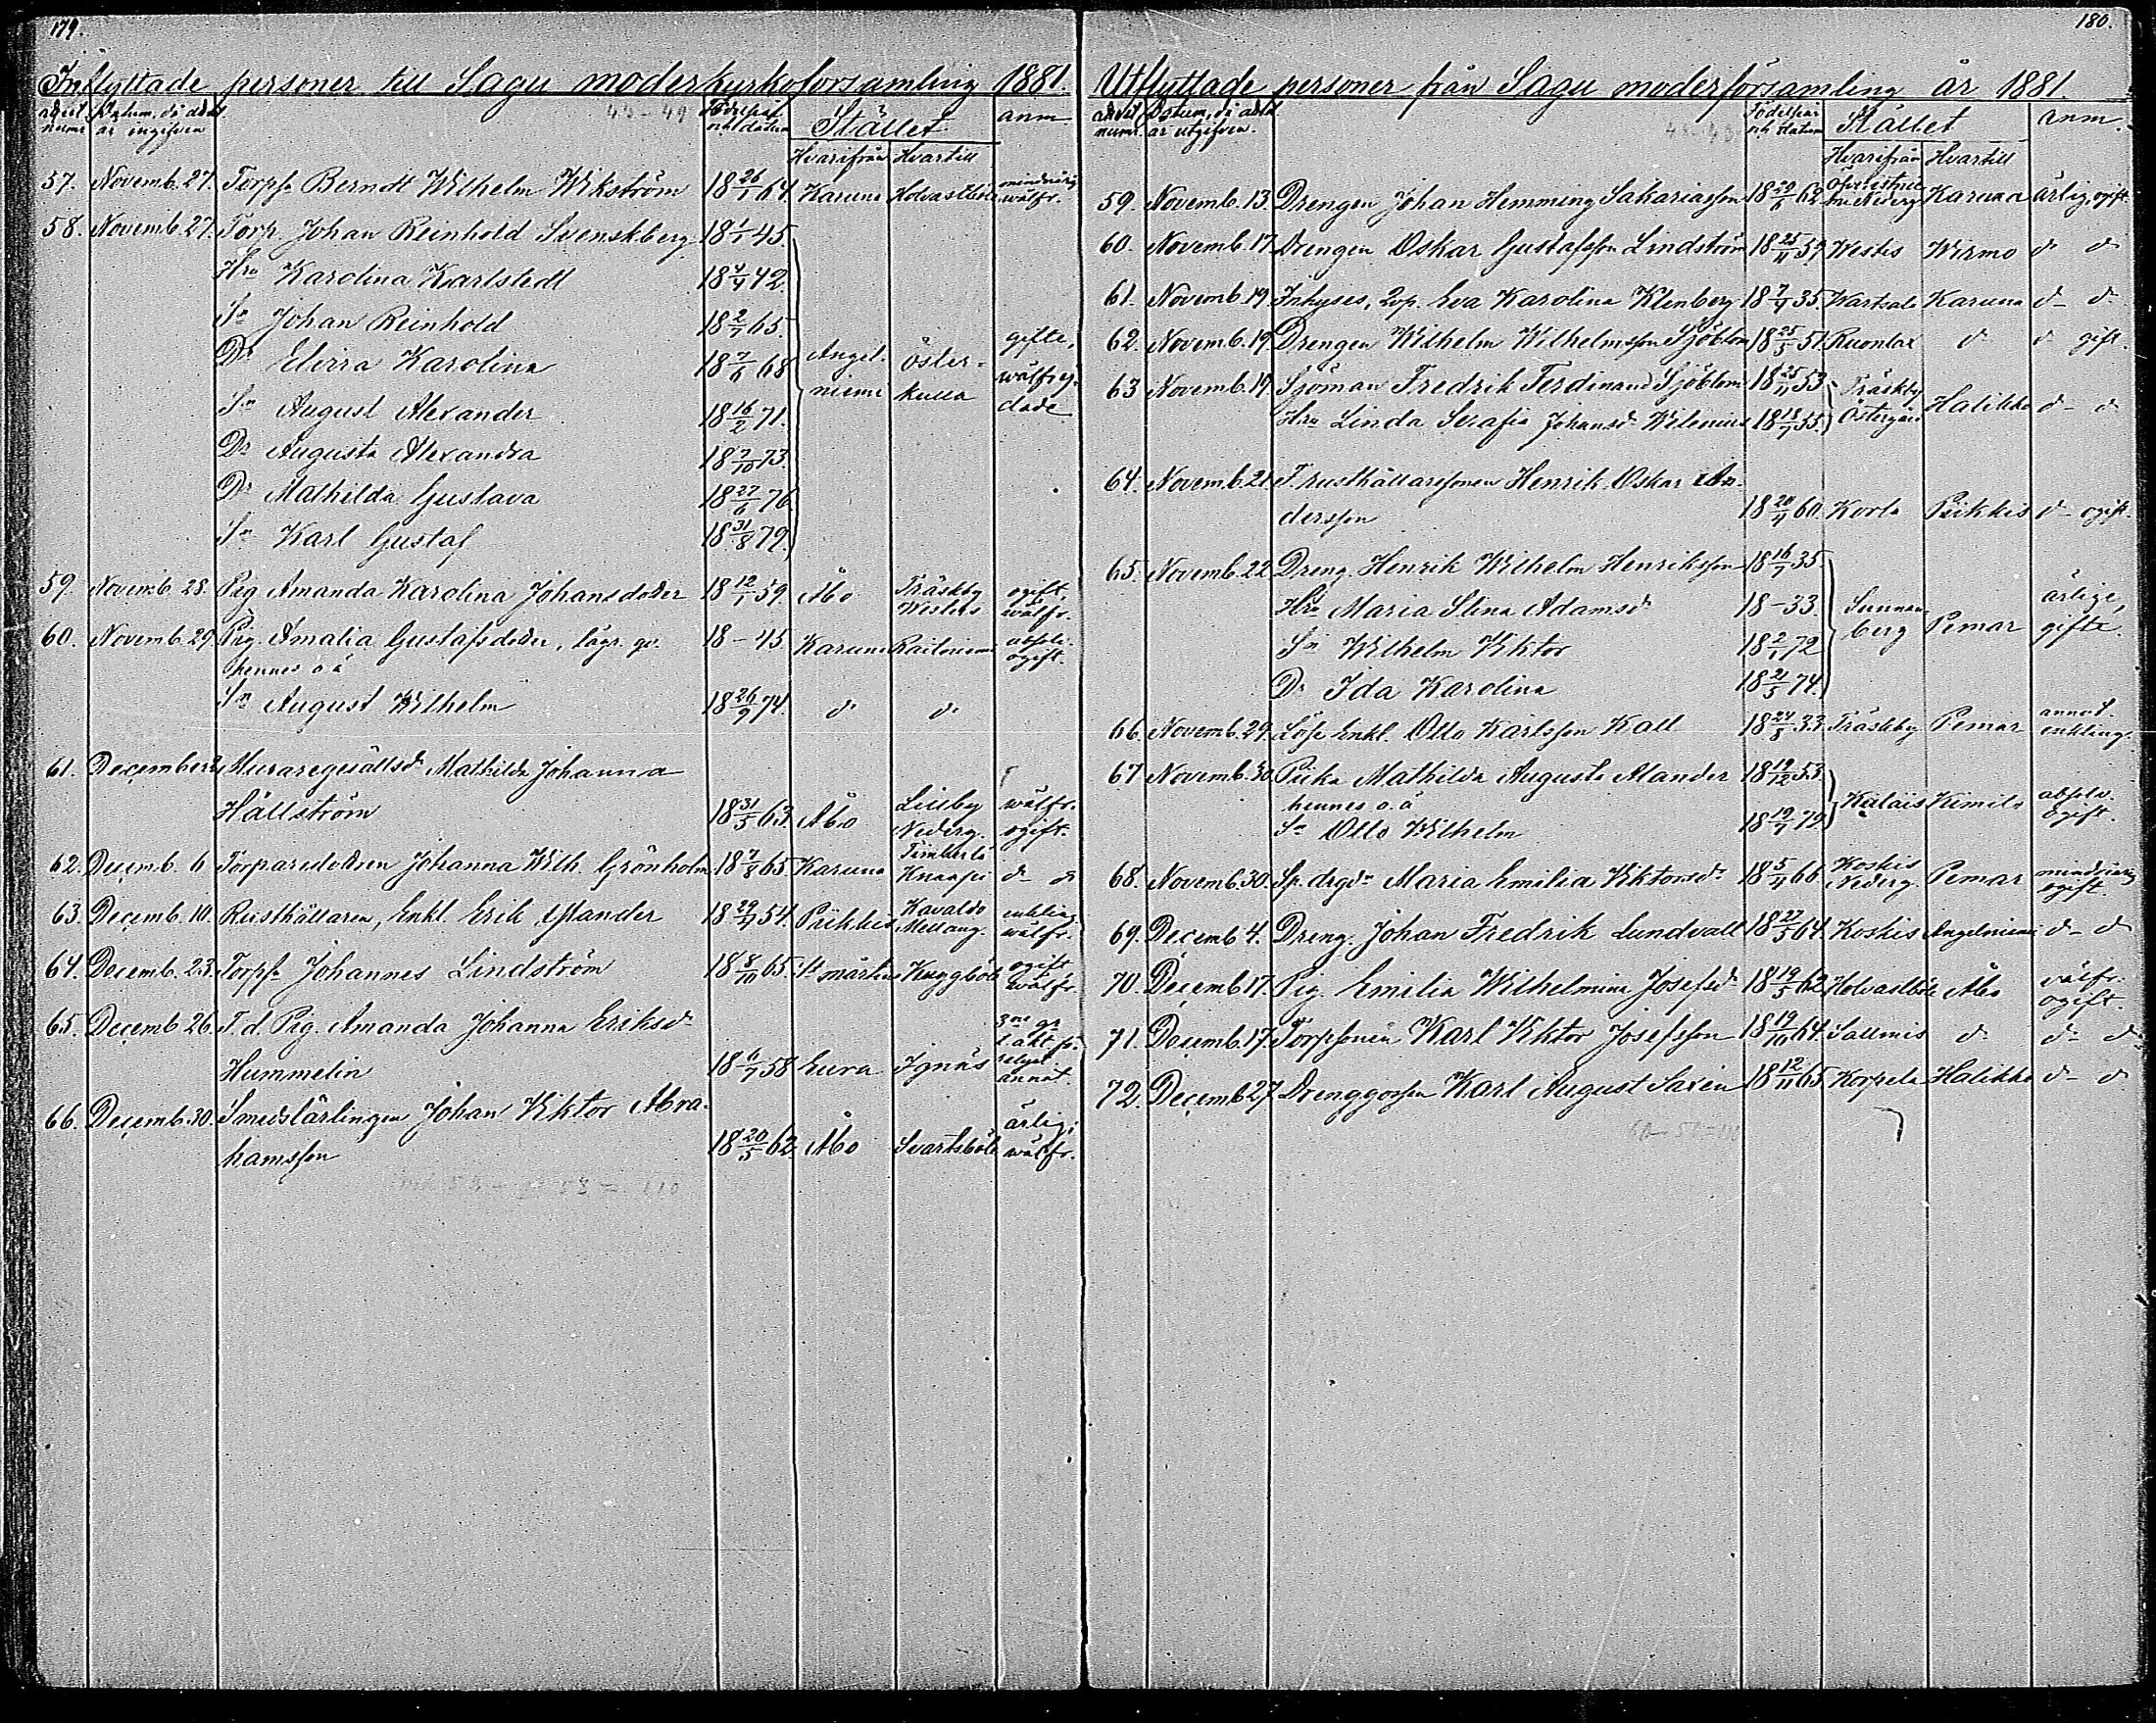 179.
Inflyttade personer till Sagu moderkyrkoforsamling 1881.
Datum, då
är ingifven
Födelseår
och datum
Stället
anm.
Hvarifrån Hvartill
57. Novemb. 27. Torpſn Berndt Wilhelm Wikström 18 26/1 64. Karuna Holvastböle välfr.
58. Novemb. 27. Torp. Johan Reinhold Svenskberg 18 1/1 45.
Hru Karolina Karlstedt 18 4/4 42.
Sn Johan Reinhold 18 2/7 65.
Dr Elvira Karolina 18 7/6 68 Angel- öster- gifte,
niemi kulla välfrej-
dade
Sn August Alexander 18 16/2 71.
Dr Augusta Alexandra 18 7/10 73.
Dr Mathilda Gustava 18 27/6 76.
Sn Karl Gustaf 18 31/8 79.
59. Novemb. 28. Pig Amanda Karolina Johansdotter 18 12/1 59. Åbo Träskby ogift,
välfr.
60. Novemb. 29. Pig. Amalia Gustafsdotter, lägr. qv. 18 - 45. Karuna absolv.
hennes o.ä ogift.
Sn August Wilhelm 18 26/9 74. d:o d:o
61. December 2. Muraregesällsd. Mathilda Johanna
Hällström 18 31/5 63. Åbo Lilleby välfr.
Nederg. ogift.
62. Decemb. 6 Torparedottren Johanna Wilh. Grönholm 18 7/8 65. Karuna Knaapi d:o d:o
63. Decemb. 10. Rusthållaren, Enkl. Erik 18 29/4 54. Piikkis enkling
Mellang. välfr.
64. Decemb. 23. Torpſn Johannes Lindström 18 8/10 65. St Mårtens Kuggböle ogift
välfr.
65. Decemb. 26. T. d. Pig. Amanda Johanna Eriksdr
Hummelin 18 6/7 58 Eura Ignäs
66. Decemb. 30. Smedslärlingen Johan Viktor Abra-
hamsſon 18 20/5 62. Åbo Svartsböle ärlig;
välfr.
180.
Utflyttade personer från Sagu moderförsamling år 1881.
Datum, då
är utgifven.
Födelseår
och datum
Stället
anm.
Hvarifrån Hvartill
59. Novemb. 13. Drengen Johan Hemming Sakariasſon 18 29/6 62 Karuna ärlig, ogift.
60. Novemb. 17. Drengen Oskar Gustafsſon Lindström 18 25/11 57. Westis Wirmo d:o d:o
61. Novemb. 19. Inhyses, Eva Karolina Klenberg 18 7/9 35. Wartsala Karuna d:o d:o
62. Novemb. 19. Drengen Wilhelm Wilhelmsſon Sjöblom 18 25/5 51. Ruonlax d:o d:o gift.
63 Novemb. 19. Sjöman Fredrik Ferdinand Sjöblom 18 25/11 53. Träskby
Hru Linda Serafia Johansdr Wilenius 18 18/7 55. Östergård Halikko d:o d:o
64. Novemb. 21. Rusthållaresſonen Henrik Oskar An-
dersſon 18 20/4 60. Korla Piikkis d:o ogift.
65. Novemb. 22. Dreng. Henrik Wilhelm Henriksſon 18 16/7 35.
Hru Maria Stina Adamsdr 18 - 33. Sunnan- ärlige,
berg Pemar gifte.
Sn Wilhelm Viktor 18 2/1 72
Dr Ida Karolina 18 21/5 74.
66. Novemb. 29. Lösa Enkl. Otto Karlsſon Kall 18 24/8 33. Träskby Pemar
enkling.
67 Novemb. 30. Piika Mathilda Augusta Alander 18 19/12 53.
hennes o.ä Kimito absolv.
Sn Otto Wilhelm 18 19/7 79. ogift.
68. Novemb. 30. Sp. drgdr Maria Emilia Viktorsdr 18 5/4 66 Koskis Pemar
Nederg. ogift.
69. Decemb. 4. Dreng. Johan Fredrik Lundvall 18 27/5 64. Koskis Angelniemi d:o d:o
70. Decemb. 17. Pig. Emilia Wilhelmina Josefsdr 18 19/5 62. Holvastböle Åbo välfr.
ogift.
71. Decemb. 17. Torpſonen Karl Viktor Josefsſon 18 19/10 64. Sallmis d:o d:o d:o
72. Decemb. 27. Drenggosſen Karl August Saxén 18 12/11 65. Korpela Halikko d:o d:o